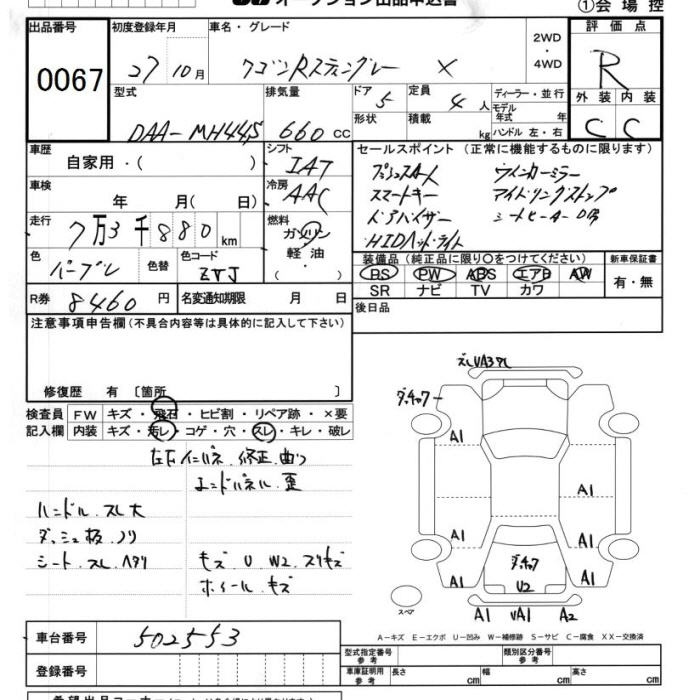 オークション出品申込書
①会場控
出品番号 初度登録年月 車名・グレード 2WD・4WD 評価点
0067 27 10月 ワゴンRスティングレー X R
型式 排気量 ドア 5 定員 4人 ディーラー・並行 外装 内装
DAA-MH44S 660cc 形状 積載 kg モデル年式 年 ハンドル 左・右 C C
車歴 自家用・( ) シフト IAT セールスポイント (正常に機能するものに限ります)
車検 年 月( 日) 冷房 AAC プッシュスタート ウインカーミラー
スマートキー アイドリングストップ
走行 7万3千880km 燃料 ガソリン・軽油・ ドアバイザー シートヒーターD席
HIDヘッドライト
色 パープル 色替 色コード ZVJ 装備品 (純正品に限り〇をつけてください) 新車保証書
PS PW ABS エアB AW 有・無
SR ナビ TV カワ
R券 8460円 名変通知期限 月 日 後日品
注意事項申告欄(不具合内容等は具体的に記入して下さい)
修復歴 有 〔箇所 〕
検査員 FW キズ・飛石・ヒビ割・リペア跡・×要
記入欄 内装 キズ・汚レ・コゲ・穴・スレ・キレ・破レ
左右インパネ.修正.曲り
エンドパネル.歪
ハンドル.スレ大
ダッシュ板.ノリ
シート.スレ.ヘタリ キズ U W2 スリキズ
ホイール.キズ
A1
A1 A1
A1 A1
A1 A1
U2
スペア A1 VA1 A2
A−キズ E−エクボ U−凹み W−補修跡 S−サビ C−腐食 XX−交換済
車台番号 502553
登録番号
型式指定番号 参考 類別区分番号 参考
車庫証明用 参考 長さ cm 幅 cm 高さ cm